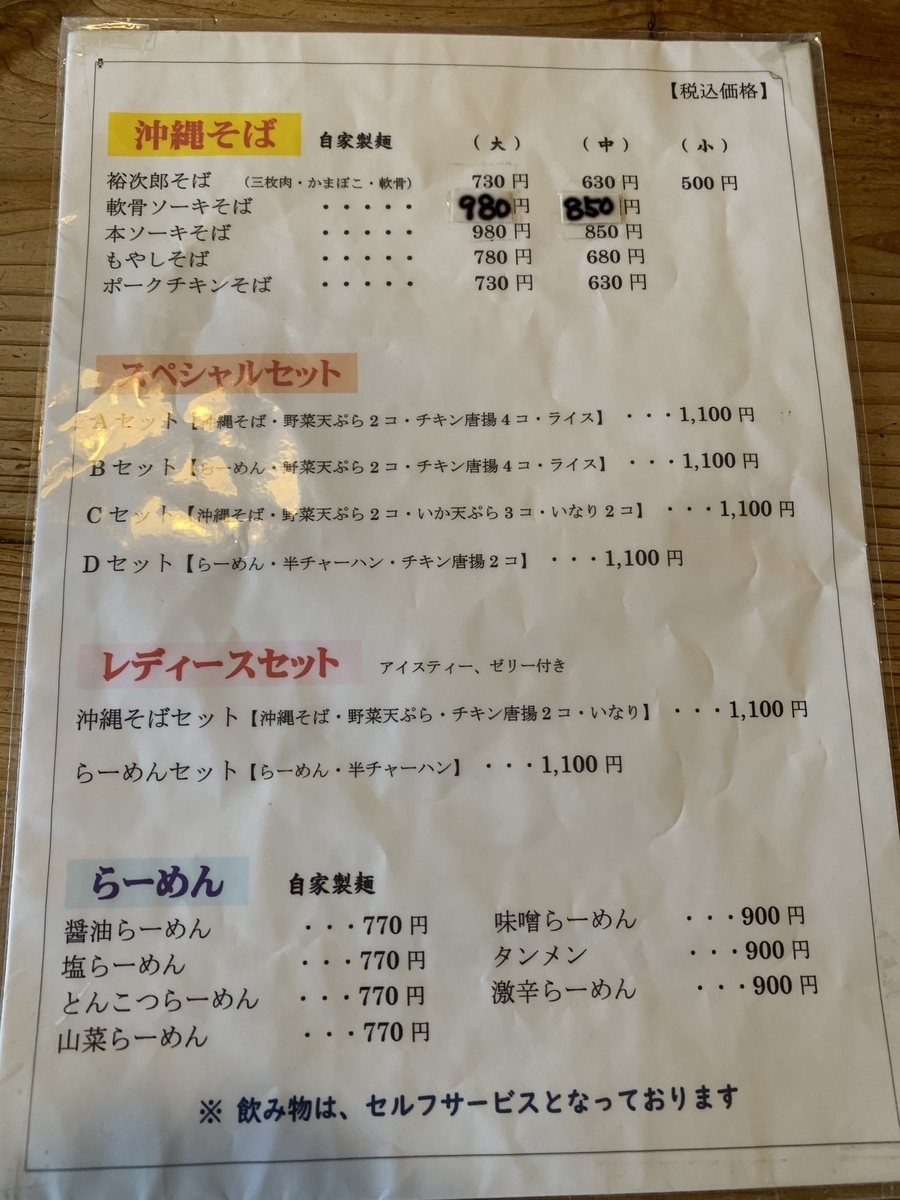 【税込価格】
沖縄そば 自家製麺 （大） （中） （小）
裕次郎そば （三枚肉・かまぼこ・軟骨） 730円 630円 500円
軟骨ソーキそば ・・・・・ 980円 850円
本ソーキそば ・・・・・ 980円 850円
もやしそば ・・・・・ 780円 680円
ポークチキンそば ・・・・・ 730円 630円
スペシャルセット
Aセット【沖縄そば・野菜天ぷら2コ・チキン唐揚4コ・ライス】 ・・・1,100円
Bセット【らーめん・野菜天ぷら2コ・チキン唐揚4コ・ライス】 ・・・1,100円
Cセット【沖縄そば・野菜天ぷら2コ・いか天ぷら3コ・いなり2コ】 ・・・1,100円
Dセット【らーめん・半チャーハン・チキン唐揚2コ】 ・・・1,100円
レディースセット アイスティー、ゼリー付き
沖縄そばセット【沖縄そば・野菜天ぷら・チキン唐揚2コ・いなり】 ・・・1,100円
らーめんセット【らーめん・半チャーハン】 ・・・1,100円
らーめん 自家製麺
醤油らーめん ・・・770円 味噌らーめん ・・・900円
塩らーめん ・・・770円 タンメン ・・・900円
とんこつらーめん ・・・770円 激辛らーめん ・・・900円
山菜らーめん ・・・770円
※ 飲み物は、セルフサービスとなっております